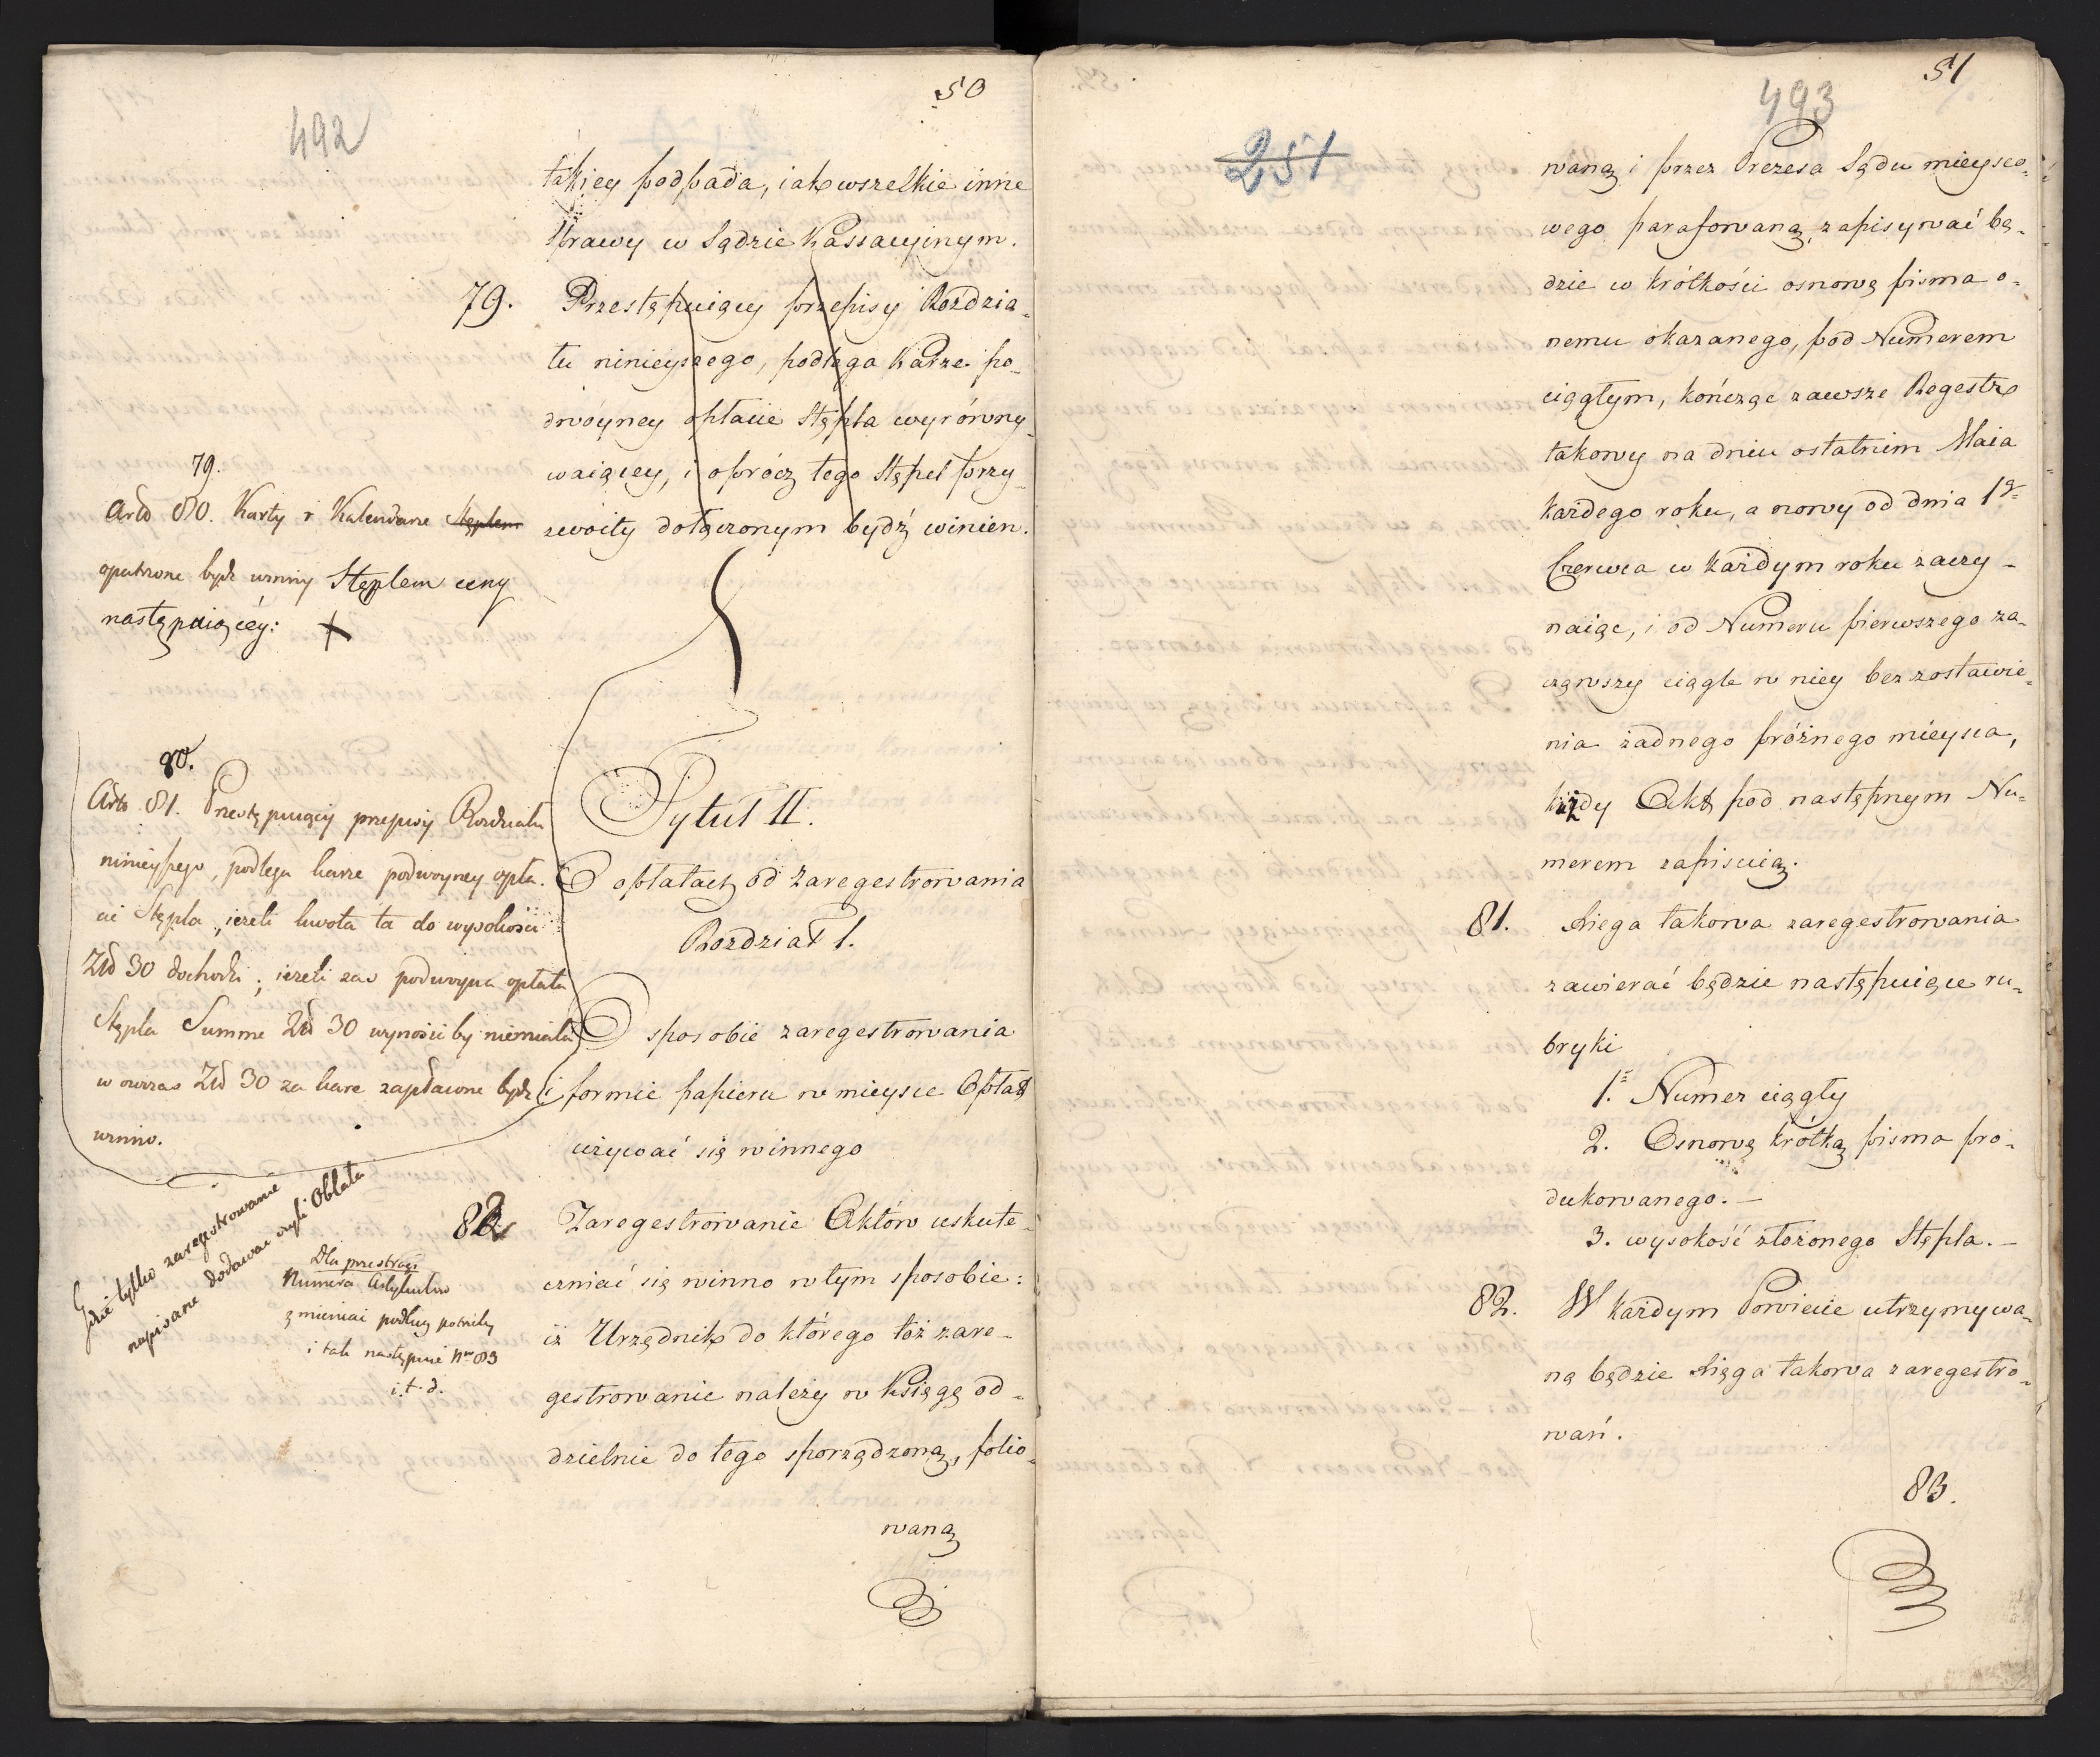 50
492
takiey podpada, iak wszelkie inne
sprawy w Sądzie Kassacyinym.
79. Przestępuiący przepisy Rozdzia-
łu ninieyszego, podlega karze po-
dwóyney opłacie Stępla wyrówny-
waiącey, i oprócz tego Stępel przy-
zwoity dołączonym bydź winien.
79.
Arto 80. Karty i Kalendarze Stęplem
opatrzone bydz winny Stęplem ceny
następuiącéy: X
80.
Arto 81. Przestępuiący przepisy Rozdziału
ninieyszego, podlega karze podwoyney opła-
cie Stępla, ieżeli kwota ta do wysokości
Złd 30 dochodzi; ieżeli zaś podwoyna opłata
Stępla Summe Złd 30 wynosić by niemiała
w owczas Złd 30 za kare zapłacone bydz
winno.
Tytuł II.
O opłatach od zaregestrowania
Rozdział 1.
O sposobie zaregestrowania
i formie papieru w mieysce Opłat
używać się winnego
Gdzie tylko zaregestrowanie
napisane dodawac czyli Oblata
Dla przestrogi
Numera Artykułow
zmieniai podług potrzeby
i tak następnie Nr 83
i. t. d.
82 Zaregestrowanie Aktów uskute-
czniać się winno w tym sposobie:
iż Urzędnik do którego toż zare-
gestrowanie należy w Księgę od-
dzielnie do tego sporządzoną, folio-
waną
51
493
251
waną i przez Prezesa Sądu mieysco-
wego parafowaną, zapisywać bę-
dzie w krótkości osnowę pisma o-
nemu okazanego, pod Numerem
ciągłym, kończąc zawsze Regestr
takowy na dniu ostatnim Maia
każdego roku, a nowy od dnia 1go
Czerwca w każdym roku zaczy-
naiąc, i od Numeru pierwszego za-
cząwszy ciągle w niey bez zostawie-
nia żadnego próżnego mieysca,
każdy Akt pod następnym Nu-
merem zapisuią.
81. Xięga takowa zaregestrowania
zawierać będzie następuiące ru-
bryki
1. Numer ciągły
2. Osnowę krótką pisma pro-
dukowanego. —
3. wysokość złożonego Stępla. —
82. W każdym Powiecie utrzymywa-
ną będzie Xięga takowa zaregestro-
wań.
83.